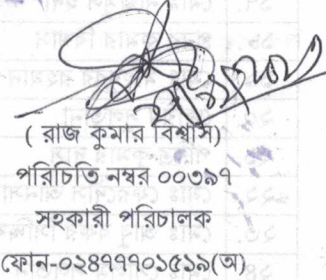 ( রাজ কুমার বিশ্বাস)
পরিচিতি নম্বর ০০৩৯৭
সহকারী পরিচালক
ফোন-০২৪৭৭৭০১৫১৯(অ)